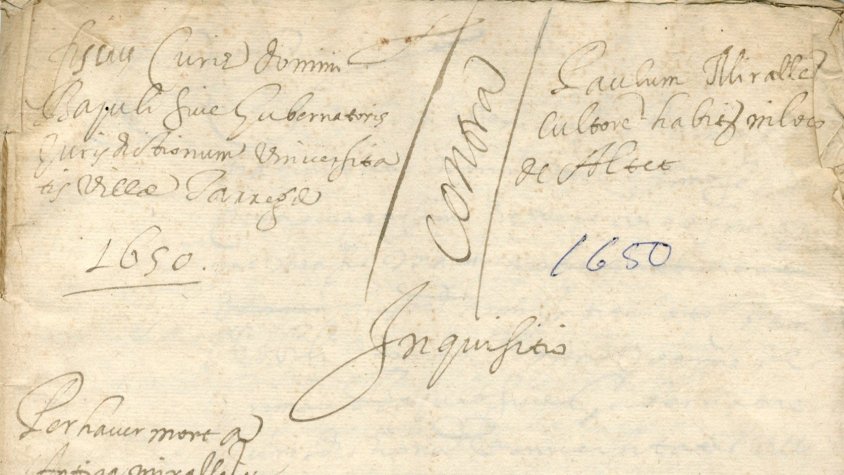 fiscus Curiæ domini
Bajuli sive Gubernatoris
Jurisdictionum Universita
tis Villæ Tarregæ
1650.
Contra
Paulum Miralles
Cultorē habitᵉ in loco
de Altet
1650
Inquisitio
Per haver mort a
Antiga miralles y